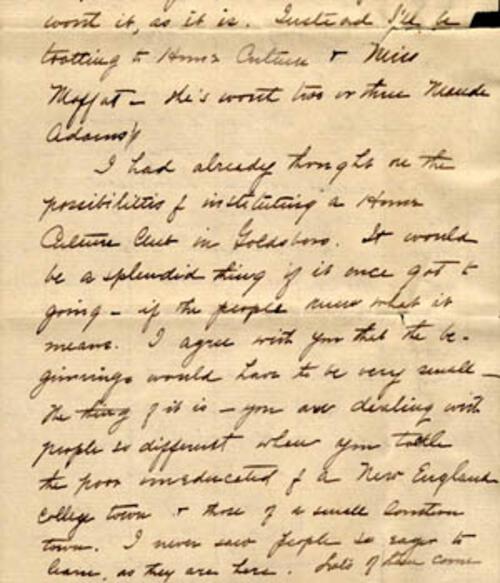 worst it, as it is. Instead I'll be
trotting to Home Culture & Miss
Moffat – He's worth two or three Maude
Adams's
I had already thought on the
possibilities of instituting a Home
Culture Club in Goldsboro. It would
be a splendid thing if it once got to
going – if the people knew what it
means. I agree with you that the be-
ginnings would have to be very small –
the thing of it is – you are dealing with
people so different when you tackle
the poor uneducated of a New England
college town & those of a small
town. I never saw people so eager to
learn, as they are here. Lots of them come